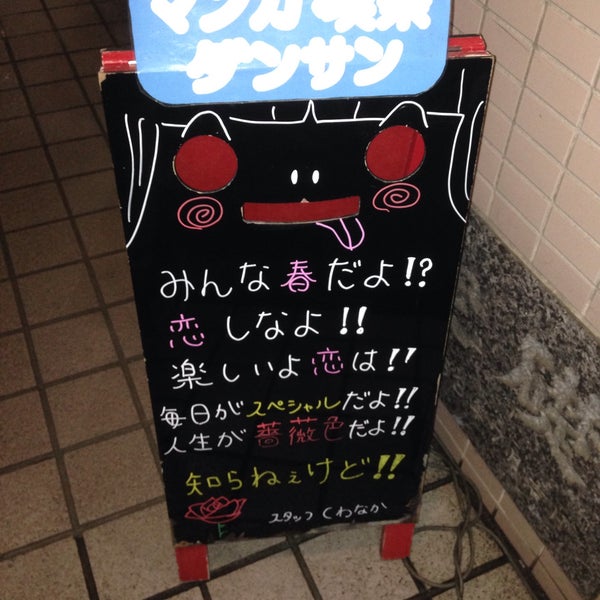 マンガ喫茶
ゲンサン
みんな春だよ!?
恋しなよ!!
楽しいよ恋は!!
毎日がスペシャルだよ!!
人生が薔薇色だよ!!
知らねぇけど!!
スタッフ くわなか